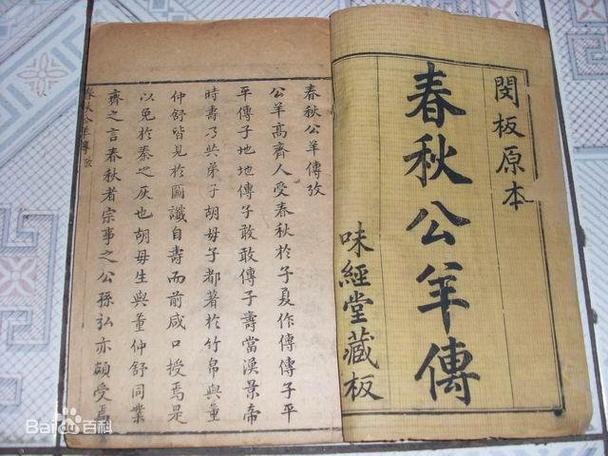 閔板原本
春秋公羊傳
味經堂藏板
春秋公羊傳攷
公羊高齊人受春秋於子夏作傳傳子平
平傳子地地傳子敢敢傳子壽當漢景帝
時壽乃共弟子胡毋子都著於竹帛與董
仲舒皆見於圖讖自壽而前咸口授焉是
以免於秦之灰也胡毋生與董仲舒同業
齊之言春秋者宗事之公孫弘亦頗受焉
春秋公羊傳攷
Baidu百科